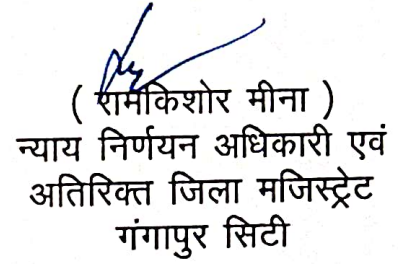 ( रामकिशोर मीना )
न्याय निर्णयन अधिकारी एवं
अतिरिक्त जिला मजिस्ट्रेट
गंगापुर सिटी